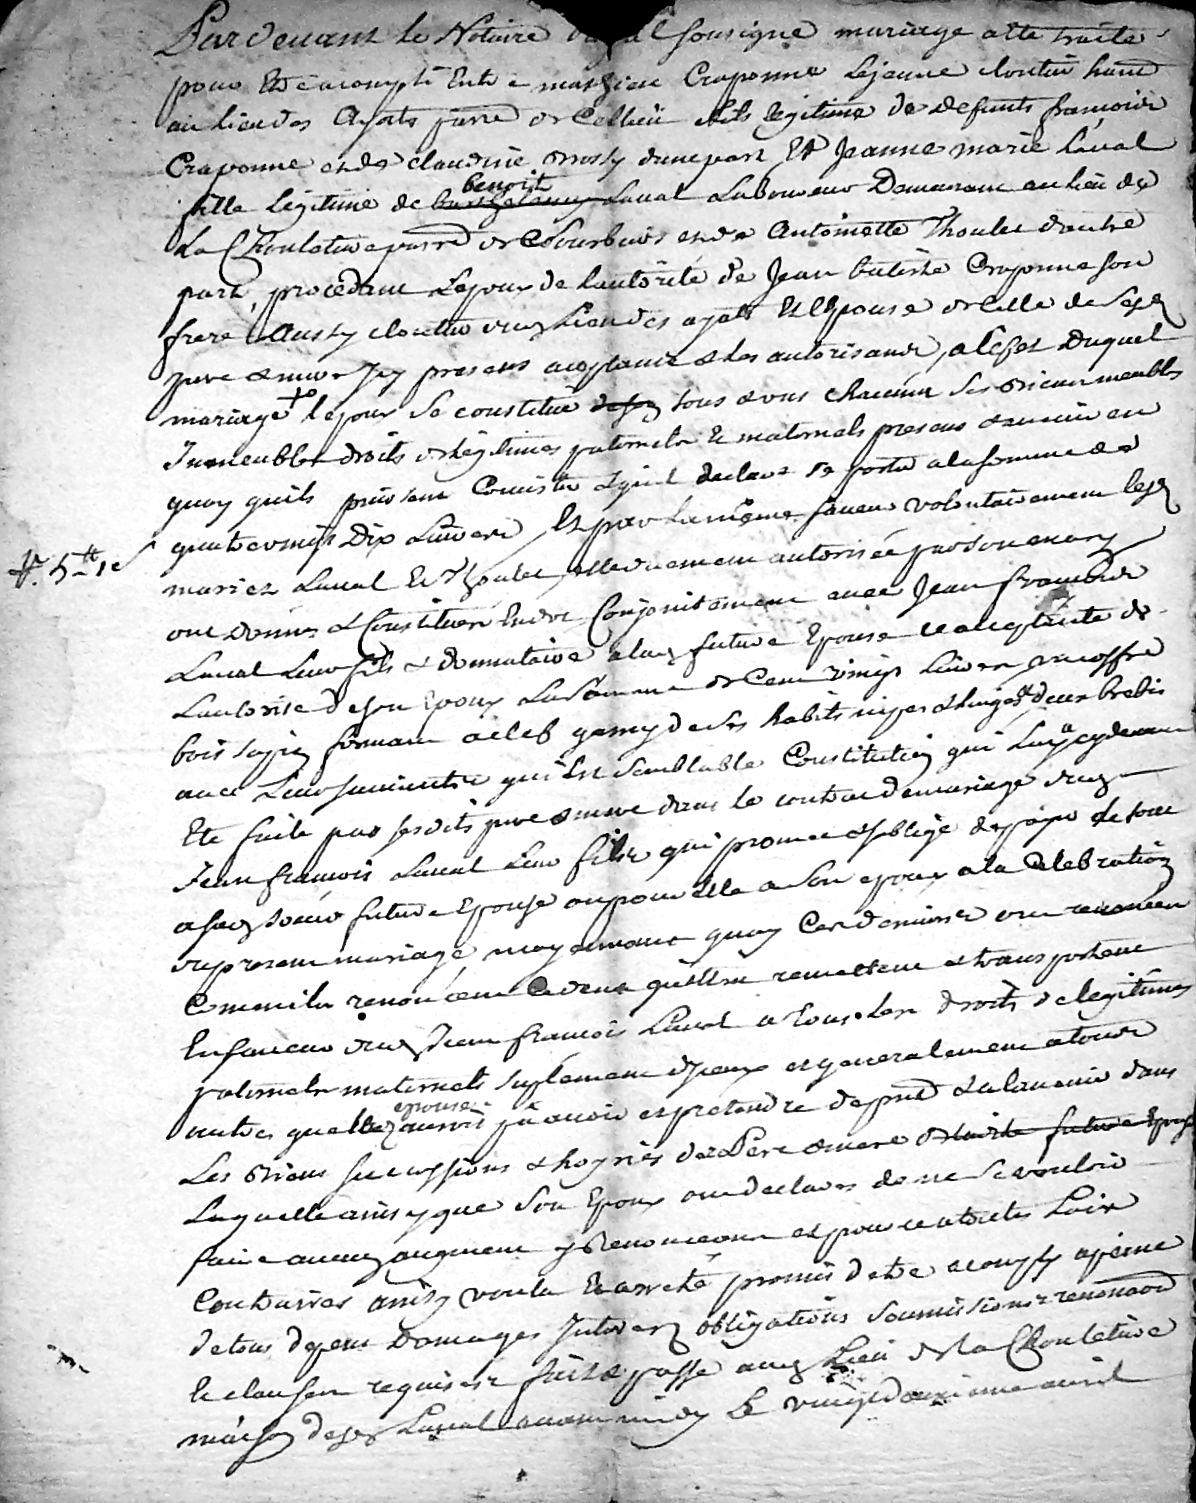 Pardevant le Notaire Royal soussigne mariage a ete traité
pour Etre acomply Entre mathieu Craponne Lejeune cloutier habt
au lieu des Ayats parr. de Cellieu fils legitime de defunts françois
Craponne et de claudine dune part Et Jeanne marie Laval
fille legitime de barthelemy benoit Laval Laboureur Demeurant au lieu de
La Chouletiere parr. de St et de Antoinette Thoulet dautre
part, procedant Lepoux de lautorité de Jean batiste Craponne son
frere Aussy cloutier dud lieu des ayats Et lEpouse de Celle de sesd
pere & mere Jcy presens aceptants & les autorisants, a lefet Duquel
mariage lepoux se constitue de son tous & uns chacuns ses Biens meubles
Jmmeubles droits & legitimes paternels & maternels presens & avenir en
quoy quils puissent Consister & quil declare se porter a la somme de
quatre vingts Dix Livres Et par La même faveur volontairement lesd
f. 5 tt 1 s
mariez Laval Et Thoulet, elle duement autorisée par son mary
ont Donnés & Constitués Endot Conjointement avec Jean françois
Laval Leur fils & donnataire a lad future Epouse ce aceptante de
Lautorité de son Epoux La Somme de Cent vingt Livres, un coffre
bois sapin fermant a clef garny de ses habits nipes & linges & deux brebis
avec Leur suivante qui Est semblable Constitution qui luy a cydevant
Eté faite par sesdits pere & mere dans le contrat de mariage dud
Jean françois Laval Leur fils, qui promet & soblige de payer le tout
a sad soeur future Epouse ou pour Elle a son epoux a la Celebration
du present mariage, moyennant quoy Ces derniers ont renoncé
Comme ils renoncent Cedent quittent remettent & transportent
En faveur dud Jean françois Laval a tous les droits de legitimes
paternels maternels suplement diceux et generalement a tous
autres quelle epouse auroit pû avoir et pretendre de pnt & a lavenir dans
Les Biens successions & hoyries de pere & mere de ladite future Epouse
Laquelle ainsy que son Epoux ont declarés de ne se vouloir
faire aucun augment y Renonceant et pour ce a toutes Loix
Contraires ainsy voulu Et arreté promis detre acomply a peine
de tous depens Domages Jnterets obligations soumissions renonciaon
Et clauses requises fait & passé aud Lieu de la Chouletiere
maison desd Laval avant midy le vingt deuxieme avril